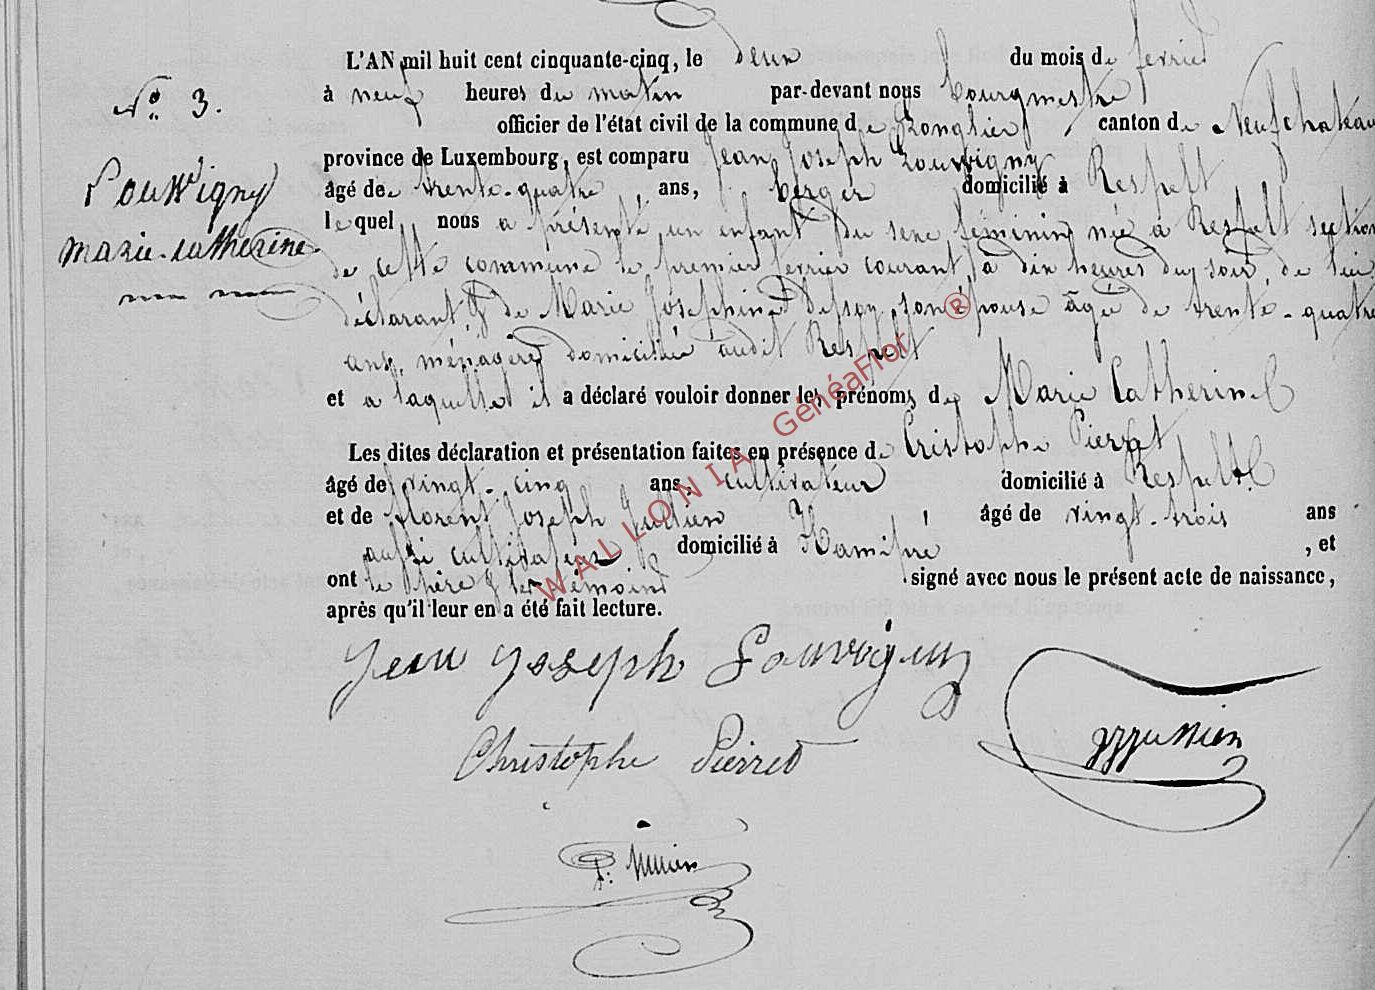 N° 3.
Louvigny
marie-catherine
L'AN mil huit cent cinquante-cinq, le deux du mois de fevrier
à neuf heures du matin par-devant nous bourgmestre
officier de l'état civil de la commune de Longlier, canton de Neufchateau
province de Luxembourg, est comparu Jean Joseph Louvigny
âgé de trente-quatre ans, berger domicilié à Respelt
lequel nous a présenté un enfant du sexe féminin née à Respelt section
de cette commune le premier fevrier courant, à dix heures du soir de lui
déclarant, & de Marie Joséphine Dessoy, son épouse âgée de trente-quatre
ans, ménagère domiciliée audit Respelt
et a laquelle il a déclaré vouloir donner les prénoms de Marie Catherine
Les dites déclaration et présentation faites en présence de Cristophe Pierret
âgé de vingt-cinq ans, cultivateur domicilié à Respelt
et de florent Joseph Jullien âgé de vingt-trois ans
aussi cultivateur domicilié à Hamipré , et
ont le père & les témoins signé avec nous le présent acte de naissance,
après qu'il leur en a été fait lecture.
Jean Joseph Louvigny
Christophe Pierret
WALLONIA GénéaFlor ®